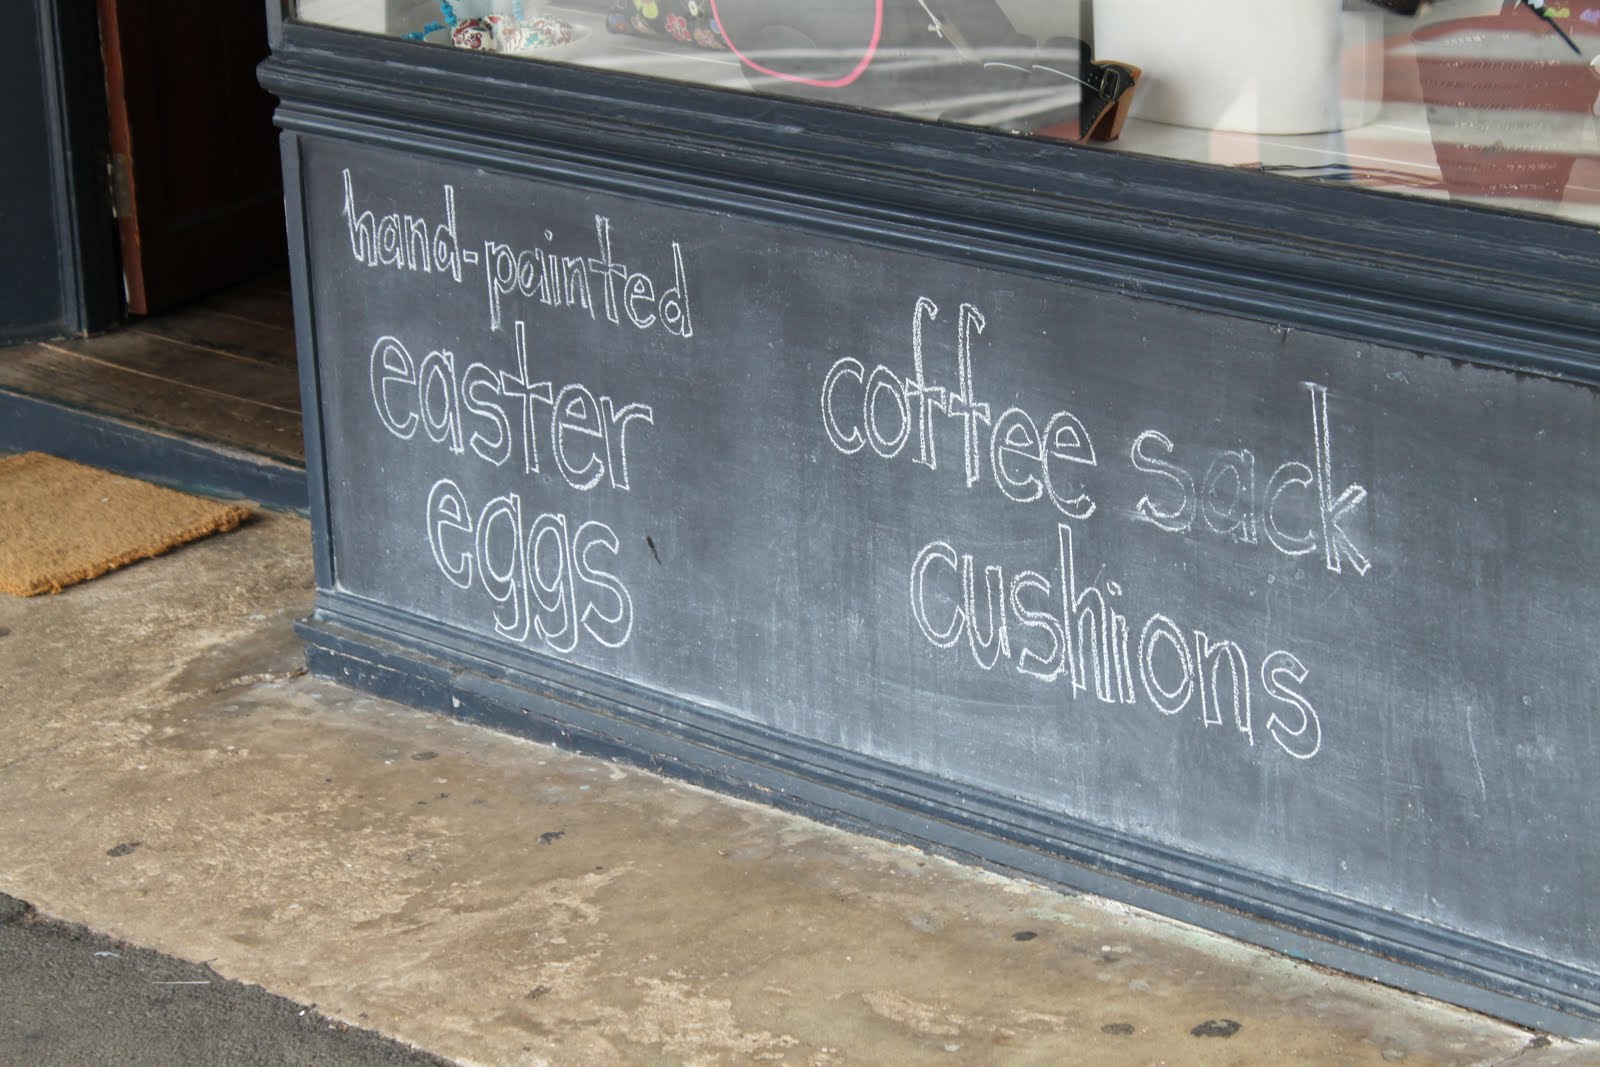 hand-painted
easter
eggs
coffee sack
cushions